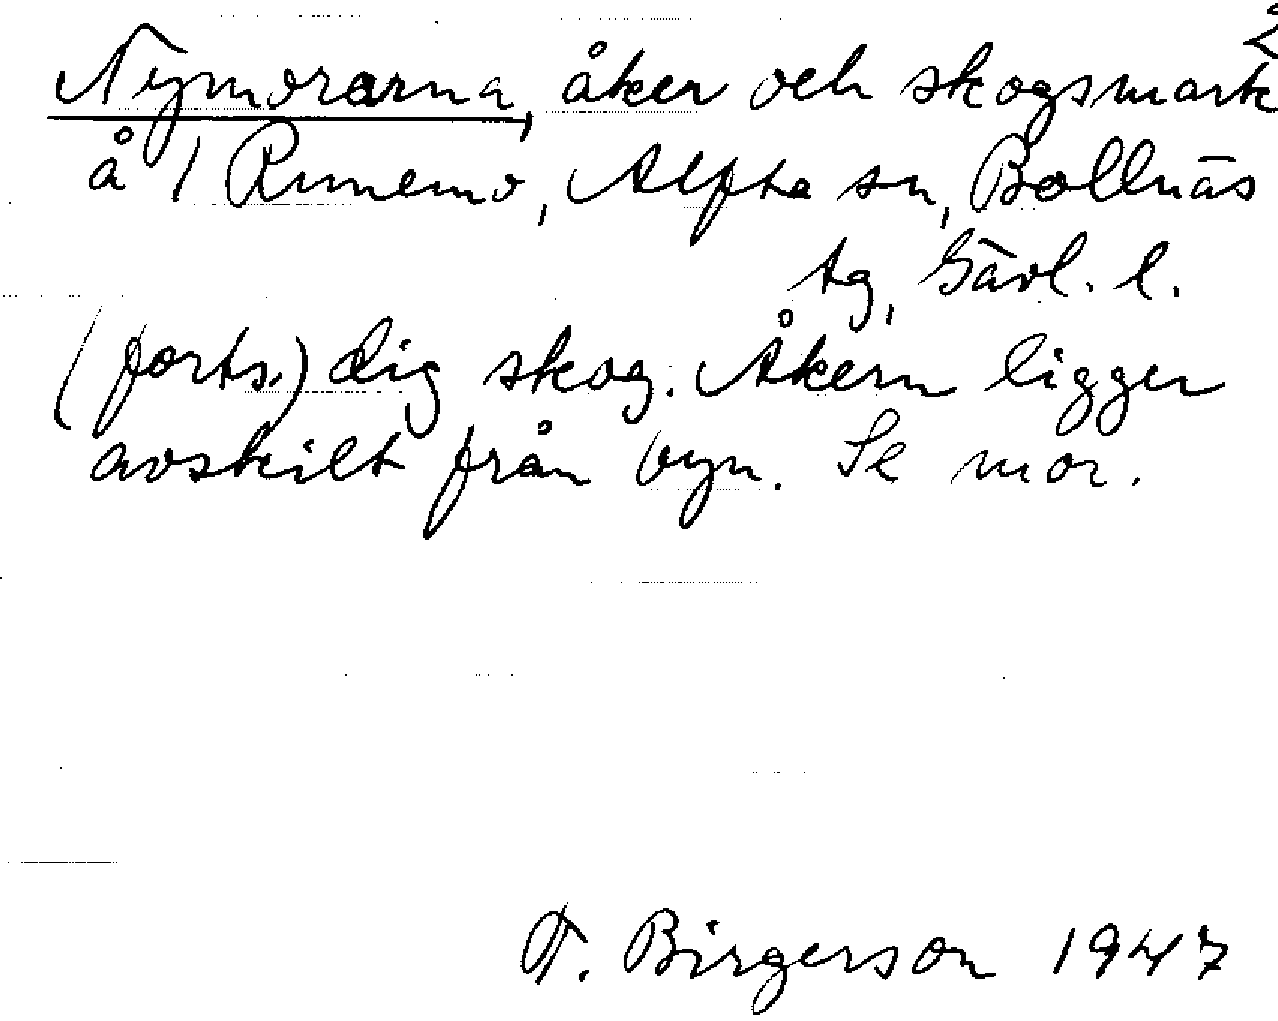 2
Nymorarna, åker och skogsmark
å 1 Runemo, Alfta sn, Bollnäs
tg, Gävl. l.
(forts.) dig skog. Åkern ligger
avskilt från byn. Se mor.
T. Birgerson 1947